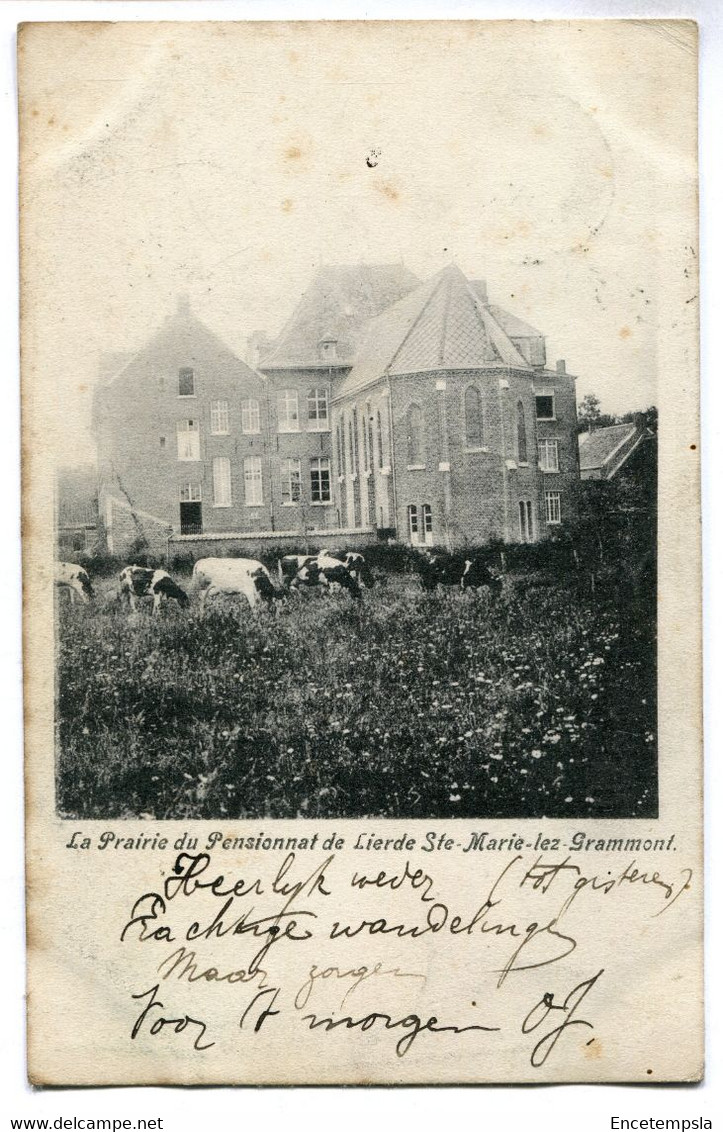 La Prairie du Pensionnat de Lierde Ste-Marie-lez-Grammont.
Heerlyk weder (tot gisteren)
Prachtige wandelingen
Maar zorgen
Voor 't morgen
http://www.delcampe.net
Encetempsla